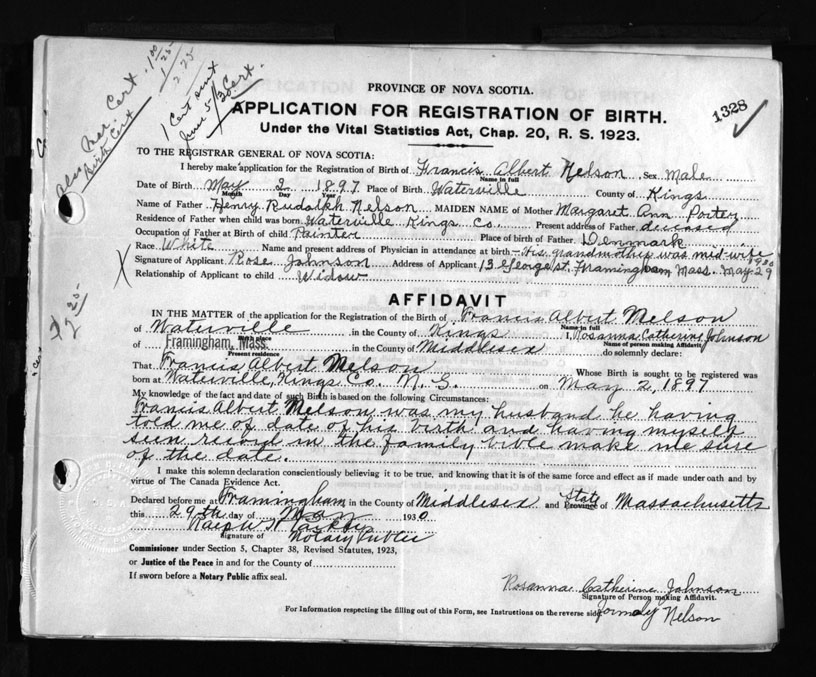 Also Mar. Cert. 1.00
Birth Cert 1.25
2.25
1 Cert and
June 5/30 Cert.
PROVINCE OF NOVA SCOTIA.
APPLICATION FOR REGISTRATION OF BIRTH.
1328
Under the Vital Statistics Act, Chap. 20, R. S. 1923.
TO THE REGISTRAR GENERAL OF NOVA SCOTIA:
I hereby make application for the Registration of Birth of Francis Albert Nelson Sex Male
Name in full
Date of Birth May 2 1897 Place of Birth Waterville County of Kings
Month Day Year
Name of Father Henry Rudolkh Nelson MAIDEN NAME of Mother Margaret Ann Porter
Residence of Father when child was born Waterville Kings Co. Present address of Father deceased
Occupation of Father at Birth of child Painter Place of birth of Father Denmark
Race White Name and present address of Physician in attendance at birth - His grandmother was mid-wife
1930
X Signature of Applicant Rose Johnson Address of Applicant 13 George St. Framingham Mass. May 29
Relationship of Applicant to child Widow
AFFIDAVIT
IN THE MATTER of the application for the Registration of the Birth of Francis Albert Nelson
Name in full
of Waterville in the County of Kings I, Rosanna Catherine Johnson
Birth place Name of person making Affidavit
of Framingham, Mass. in the County of Middlesex do solemnly declare:
Present residence
That Francis Albert Nelson Whose Birth is sought to be registered was
born at Waterville, Kings Co. N. S. on May 2, 1897
My knowledge of the fact and date of such Birth is based on the following Circumstances:
Francis Albert Nelson was my husband he having
told me of date of his birth and having myself
seen record in the family bible make me sure
of the date.
I make this solemn declaration conscientiously believing it to be true, and knowing that it is of the same force and effect as if made under oath and by
virtue of The Canada Evidence Act.
Declared before me at Framingham in the County of Middlesex and State Province of Massachusetts
this 29th day of May 1930
Signature of Notary Public
Commissioner under Section 5, Chapter 38, Revised Statutes, 1923,
or Justice of the Peace in and for the County of
If sworn before a Notary Public affix seal.
Rosanna Catherine Johnson
Signature of Person making Affidavit.
For Information respecting the filling out of this Form, see Instructions on the reverse side.
formerly Nelson